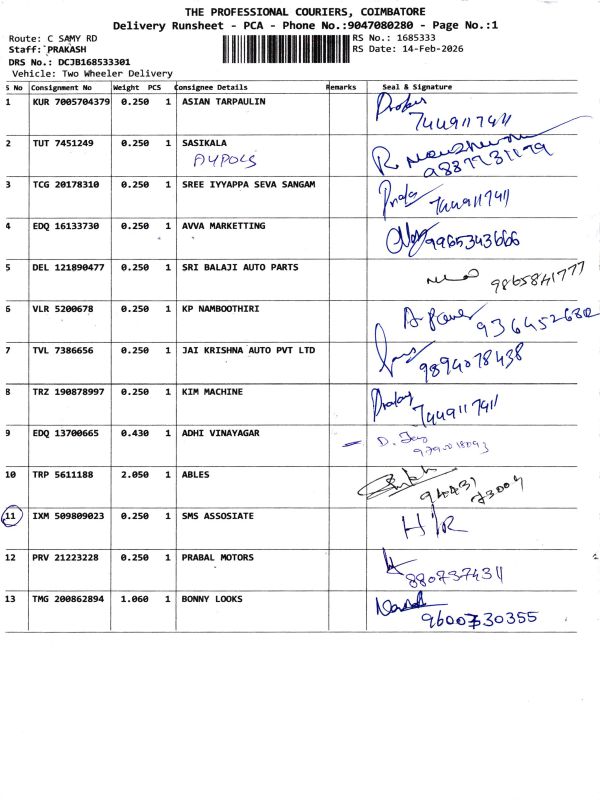 THE PROFESSIONAL COURIERS, COIMBATORE
Delivery Runsheet - PCA - Phone No.:9047080280 - Page No.:1
Route: C SAMY RD RS No.: 1685333
Staff: PRAKASH RS Date: 14-Feb-2026
DRS No.: DCJB168533301
Vehicle: Two Wheeler Delivery
S No Consignment No Weight PCS Consignee Details Remarks Seal & Signature
1 KUR 7005704379 0.250 1 ASIAN TARPAULIN
7449117411
2 TUT 7451249 0.250 1 SASIKALA
3 TCG 20178310 0.250 1 SREE IYYAPPA SEVA SANGAM
7449117411
4 EDQ 16133730 0.250 1 AVVA MARKETTING 9965343666
5 DEL 121890477 0.250 1 SRI BALAJI AUTO PARTS
9865841777
6 VLR 5200678 0.250 1 KP NAMBOOTHIRI
7 TVL 7386656 0.250 1 JAI KRISHNA AUTO PVT LTD
9894078438
8 TRZ 190878997 0.250 1 KIM MACHINE
7449117411
9 EDQ 13700665 0.430 1 ADHI VINAYAGAR
10 TRP 5611188 2.050 1 ABLES
94431
73004
11 IXM 509809023 0.250 1 SMS ASSOSIATE H/R
12 PRV 21223228 0.250 1 PRABAL MOTORS
8807374311
13 TMG 200862894 1.060 1 BONNY LOOKS
9600730355